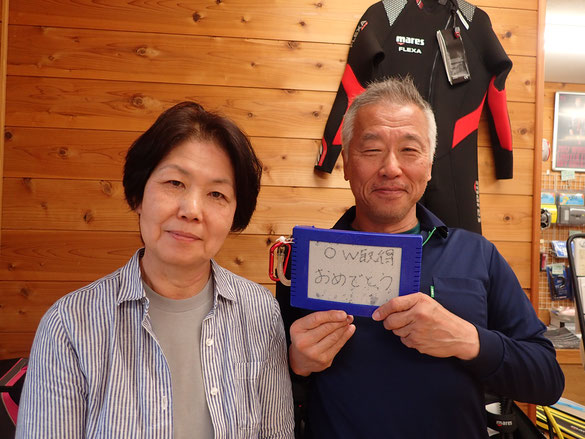 mares
FLEXA
OW取得
おめでとう
mares